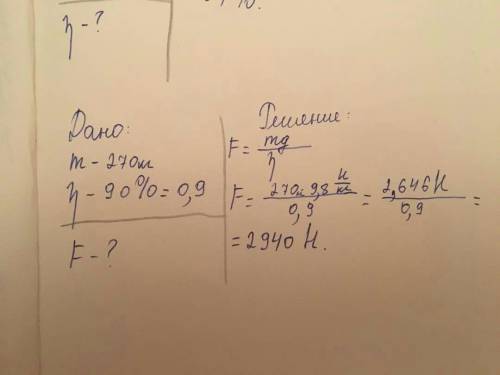 η - ?
Дано:
m - 270кг
η - 90% = 0,9
F - ?
Решение:
F = mg / η
F = 270 · 9,8 Н/кг / 0,9 = 2,646 Н / 0,9 =
= 2940 Н.